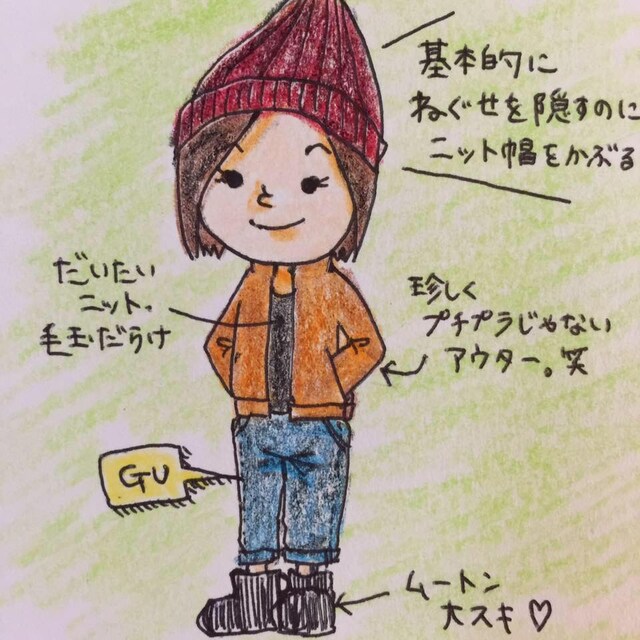 基本的に
ねぐせを隠すのに
ニット帽をかぶる
だいたい
ニット。
毛玉だらけ
珍しく
プチプラじゃない
アウター。笑
GU
ムートン
大スキ♡